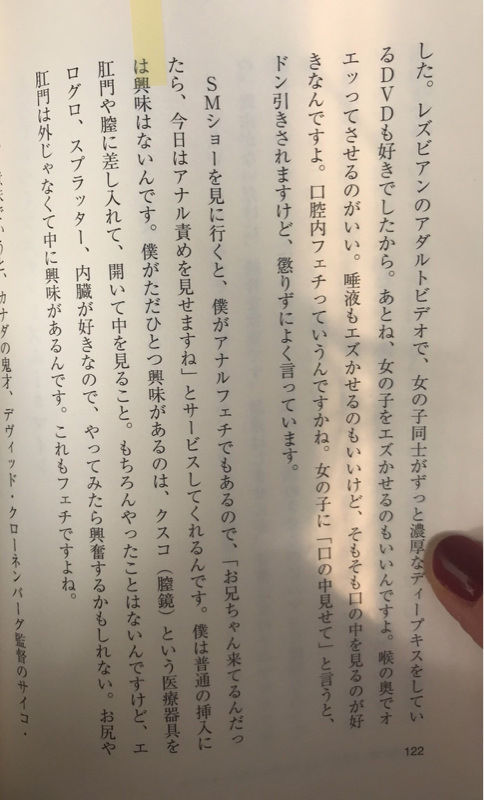 した。レズビンアのアダルトビデオで、女の子同士がずっと濃厚なディープキスをしてい
るDVDも好きでしたから。あとね、女の子をエズかせるのもいいんですよ。喉の奥でオ
エッってさせるのがいい。唾液もエズかせるのもいいけど、そもそも口の中を見るのが好
きなんですよ。口腔内フェチっていうんですかね。女の子に「口の中見せて」と言うと、
ドン引きされますけど、懲りずによく言っています。
SMショーを見に行くと、僕がアナルフェチでもあるので、「お兄ちゃん来てるんだっ
たら、今日はアナル責めを見せますね」とサービスしてくれるんです。僕は普通の挿入に
は興味はないんです。僕がただひとつ興味があるのは、クスコ（膣鏡）という医療器具を
肛門や膣に差し入れて、開いて中を見ること。もちろんやったことはないんですけど、エ
ログロ、スプラッター、内臓が好きなので、やってみたら興奮するかもしれない。お尻や
肛門は外じゃなくて中に興味があるんです。これもフェチですよね。
でいうと、カナダの鬼才、デヴィッド・クローネンバーグ監督のサイコ・
122